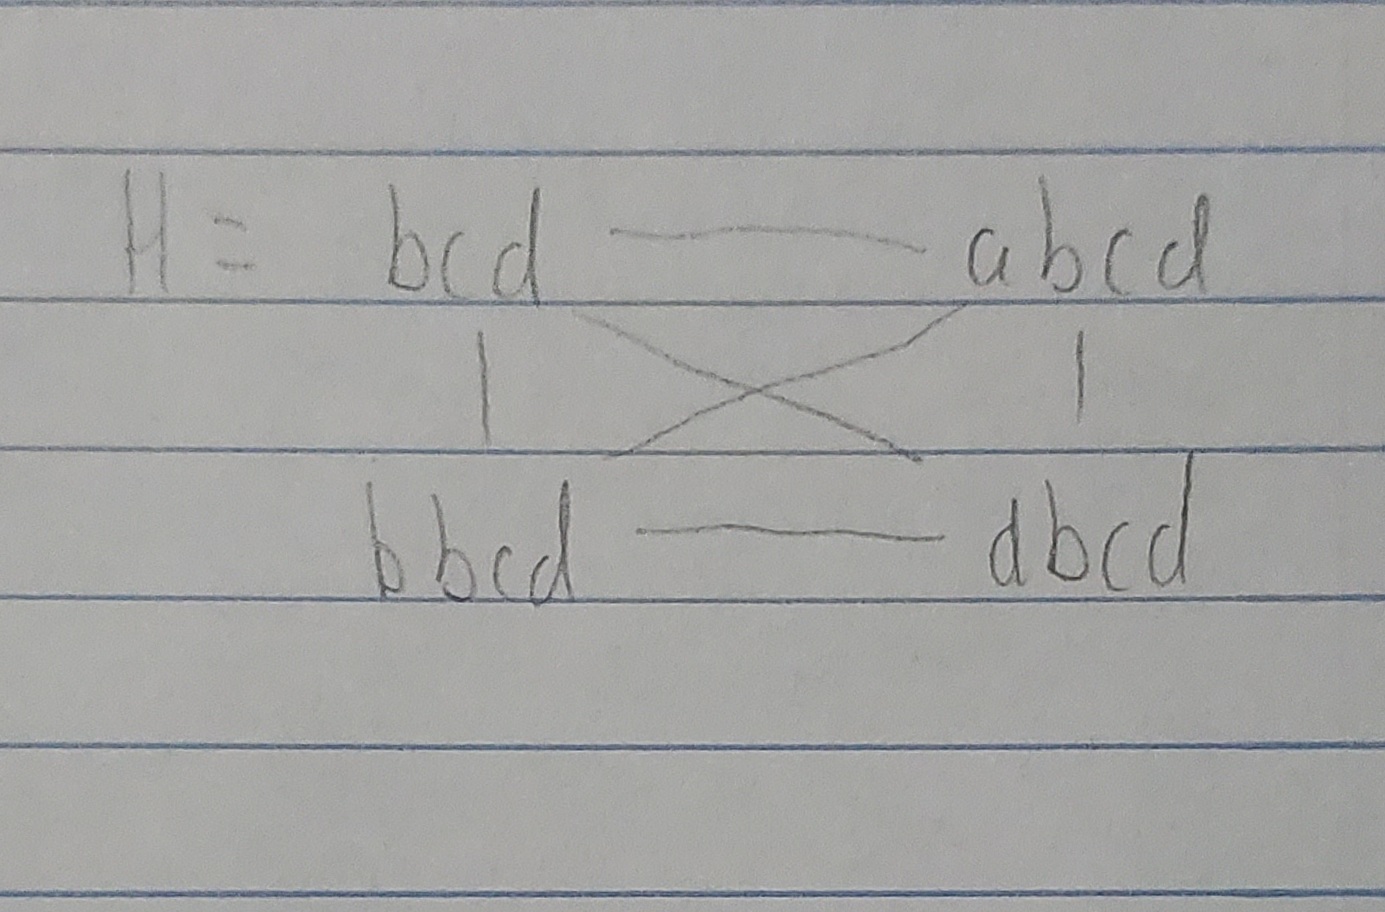 H = bcd abcd
bbcd dbcd